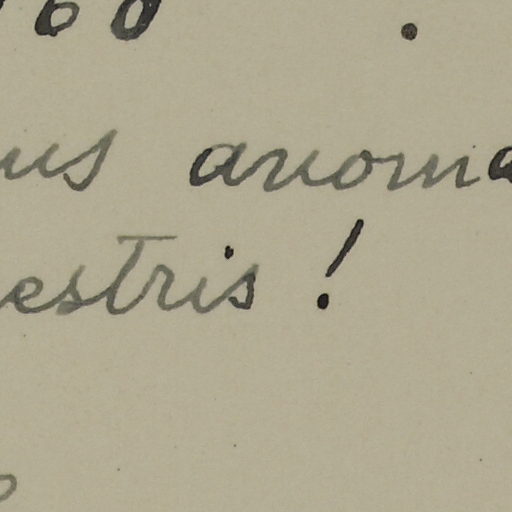 60 .
us anoma
estris!